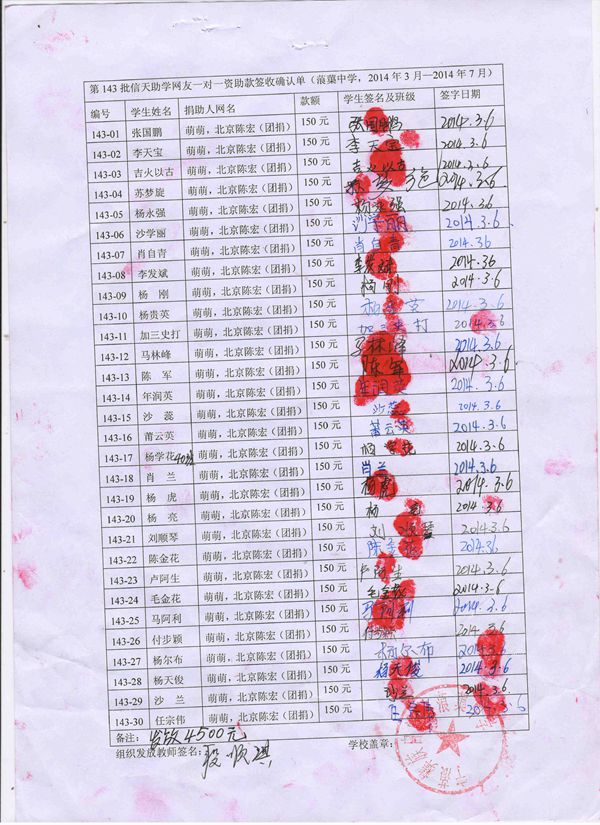 第 143 批信天助学网友一对一资助款签收确认单（蒗蕖中学，2014 年 3 月—2014 年 7 月）
编号 学生姓名 捐助人网名 款额 学生签名及班级 签字日期
143-01 张国鹏 萌萌，北京陈宏（团捐） 150 元 张国鹏 2014.3.6
143-02 李天宝 萌萌，北京陈宏（团捐） 150 元 李天宝 2014.3.6
143-03 吉火以古 萌萌，北京陈宏（团捐） 150 元 吉火以古 2014.3.6
143-04 苏梦旋 萌萌，北京陈宏（团捐） 150 元 2014.3.6
143-05 杨永强 萌萌，北京陈宏（团捐） 150 元 杨永强 2014.3.6
143-06 沙学丽 萌萌，北京陈宏（团捐） 150 元 沙学丽 2014.3.6
143-07 肖自青 萌萌，北京陈宏（团捐） 150 元 肖自青 2014.3.6
143-08 李发斌 萌萌，北京陈宏（团捐） 150 元 李发斌 2014.3.6
143-09 杨 刚 萌萌，北京陈宏（团捐） 150 元 杨刚 2014.3.6
143-10 杨贵英 萌萌，北京陈宏（团捐） 150 元 杨贵英 2014.3.6
143-11 加三史打 萌萌，北京陈宏（团捐） 150 元 加三史打 2014.3.6
143-12 马林峰 萌萌，北京陈宏（团捐） 150 元 马林峰 2014.3.6
143-13 陈 军 萌萌，北京陈宏（团捐） 150 元 陈军 2014.3.6
143-14 年润英 萌萌，北京陈宏（团捐） 150 元 年润英 2014.3.6
143-15 沙 蕊 萌萌，北京陈宏（团捐） 150 元 沙蕊 2014.3.6
143-16 莆云英 萌萌，北京陈宏（团捐） 150 元 莆云英 2014.3.6
143-17 杨学花 萌萌，北京陈宏（团捐） 150 元 杨学花 2014.3.6
143-18 肖 兰 萌萌，北京陈宏（团捐） 150 元 肖兰 2014.3.6
143-19 杨 虎 萌萌，北京陈宏（团捐） 150 元 杨虎 2014.3.6
143-20 杨 亮 萌萌，北京陈宏（团捐） 150 元 杨亮 2014.3.6
143-21 刘顺琴 萌萌，北京陈宏（团捐） 150 元 刘顺琴 2014.3.6
143-22 陈金花 萌萌，北京陈宏（团捐） 150 元 陈金花 2014.3.6
143-23 卢阿生 萌萌，北京陈宏（团捐） 150 元 卢阿生 2014.3.6
143-24 毛金花 萌萌，北京陈宏（团捐） 150 元 毛金花 2014.3.6
143-25 马阿利 萌萌，北京陈宏（团捐） 150 元 马阿利 2014.3.6
143-26 付步颖 萌萌，北京陈宏（团捐） 150 元 2014.3.6
143-27 杨尔布 萌萌，北京陈宏（团捐） 150 元 杨尔布 2014.3.6
143-28 杨天俊 萌萌，北京陈宏（团捐） 150 元 杨天俊 2014.3.6
143-29 沙 兰 萌萌，北京陈宏（团捐） 150 元 沙兰 2014.3.6
143-30 任宗伟 萌萌，北京陈宏（团捐） 150 元 2014.3.6
备注：发放4500元
组织发放教师签名： 学校盖章：